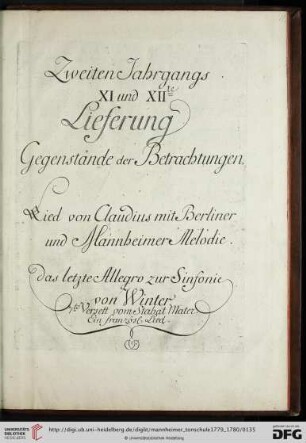 Zweiten Jahrgangs.
XI und XIIte
Lieferung
Gegenstände der Betrachtungen.
Lied von Claudius mit Berliner
und Mannheimer Melodie.
das letzte Allegro zur Sinfonie
von Winter
Versett vom Stabat Mater
Ein französl. Lied.
UNIVERSITÄTS-
BIBLIOTHEK
HEIDELBERG
http://digi.ub.uni-heidelberg.de/diglit/mannheimer_tonschule1779_1780/0135
© Universitätsbibliothek Heidelberg
gefördert durch die
DFG